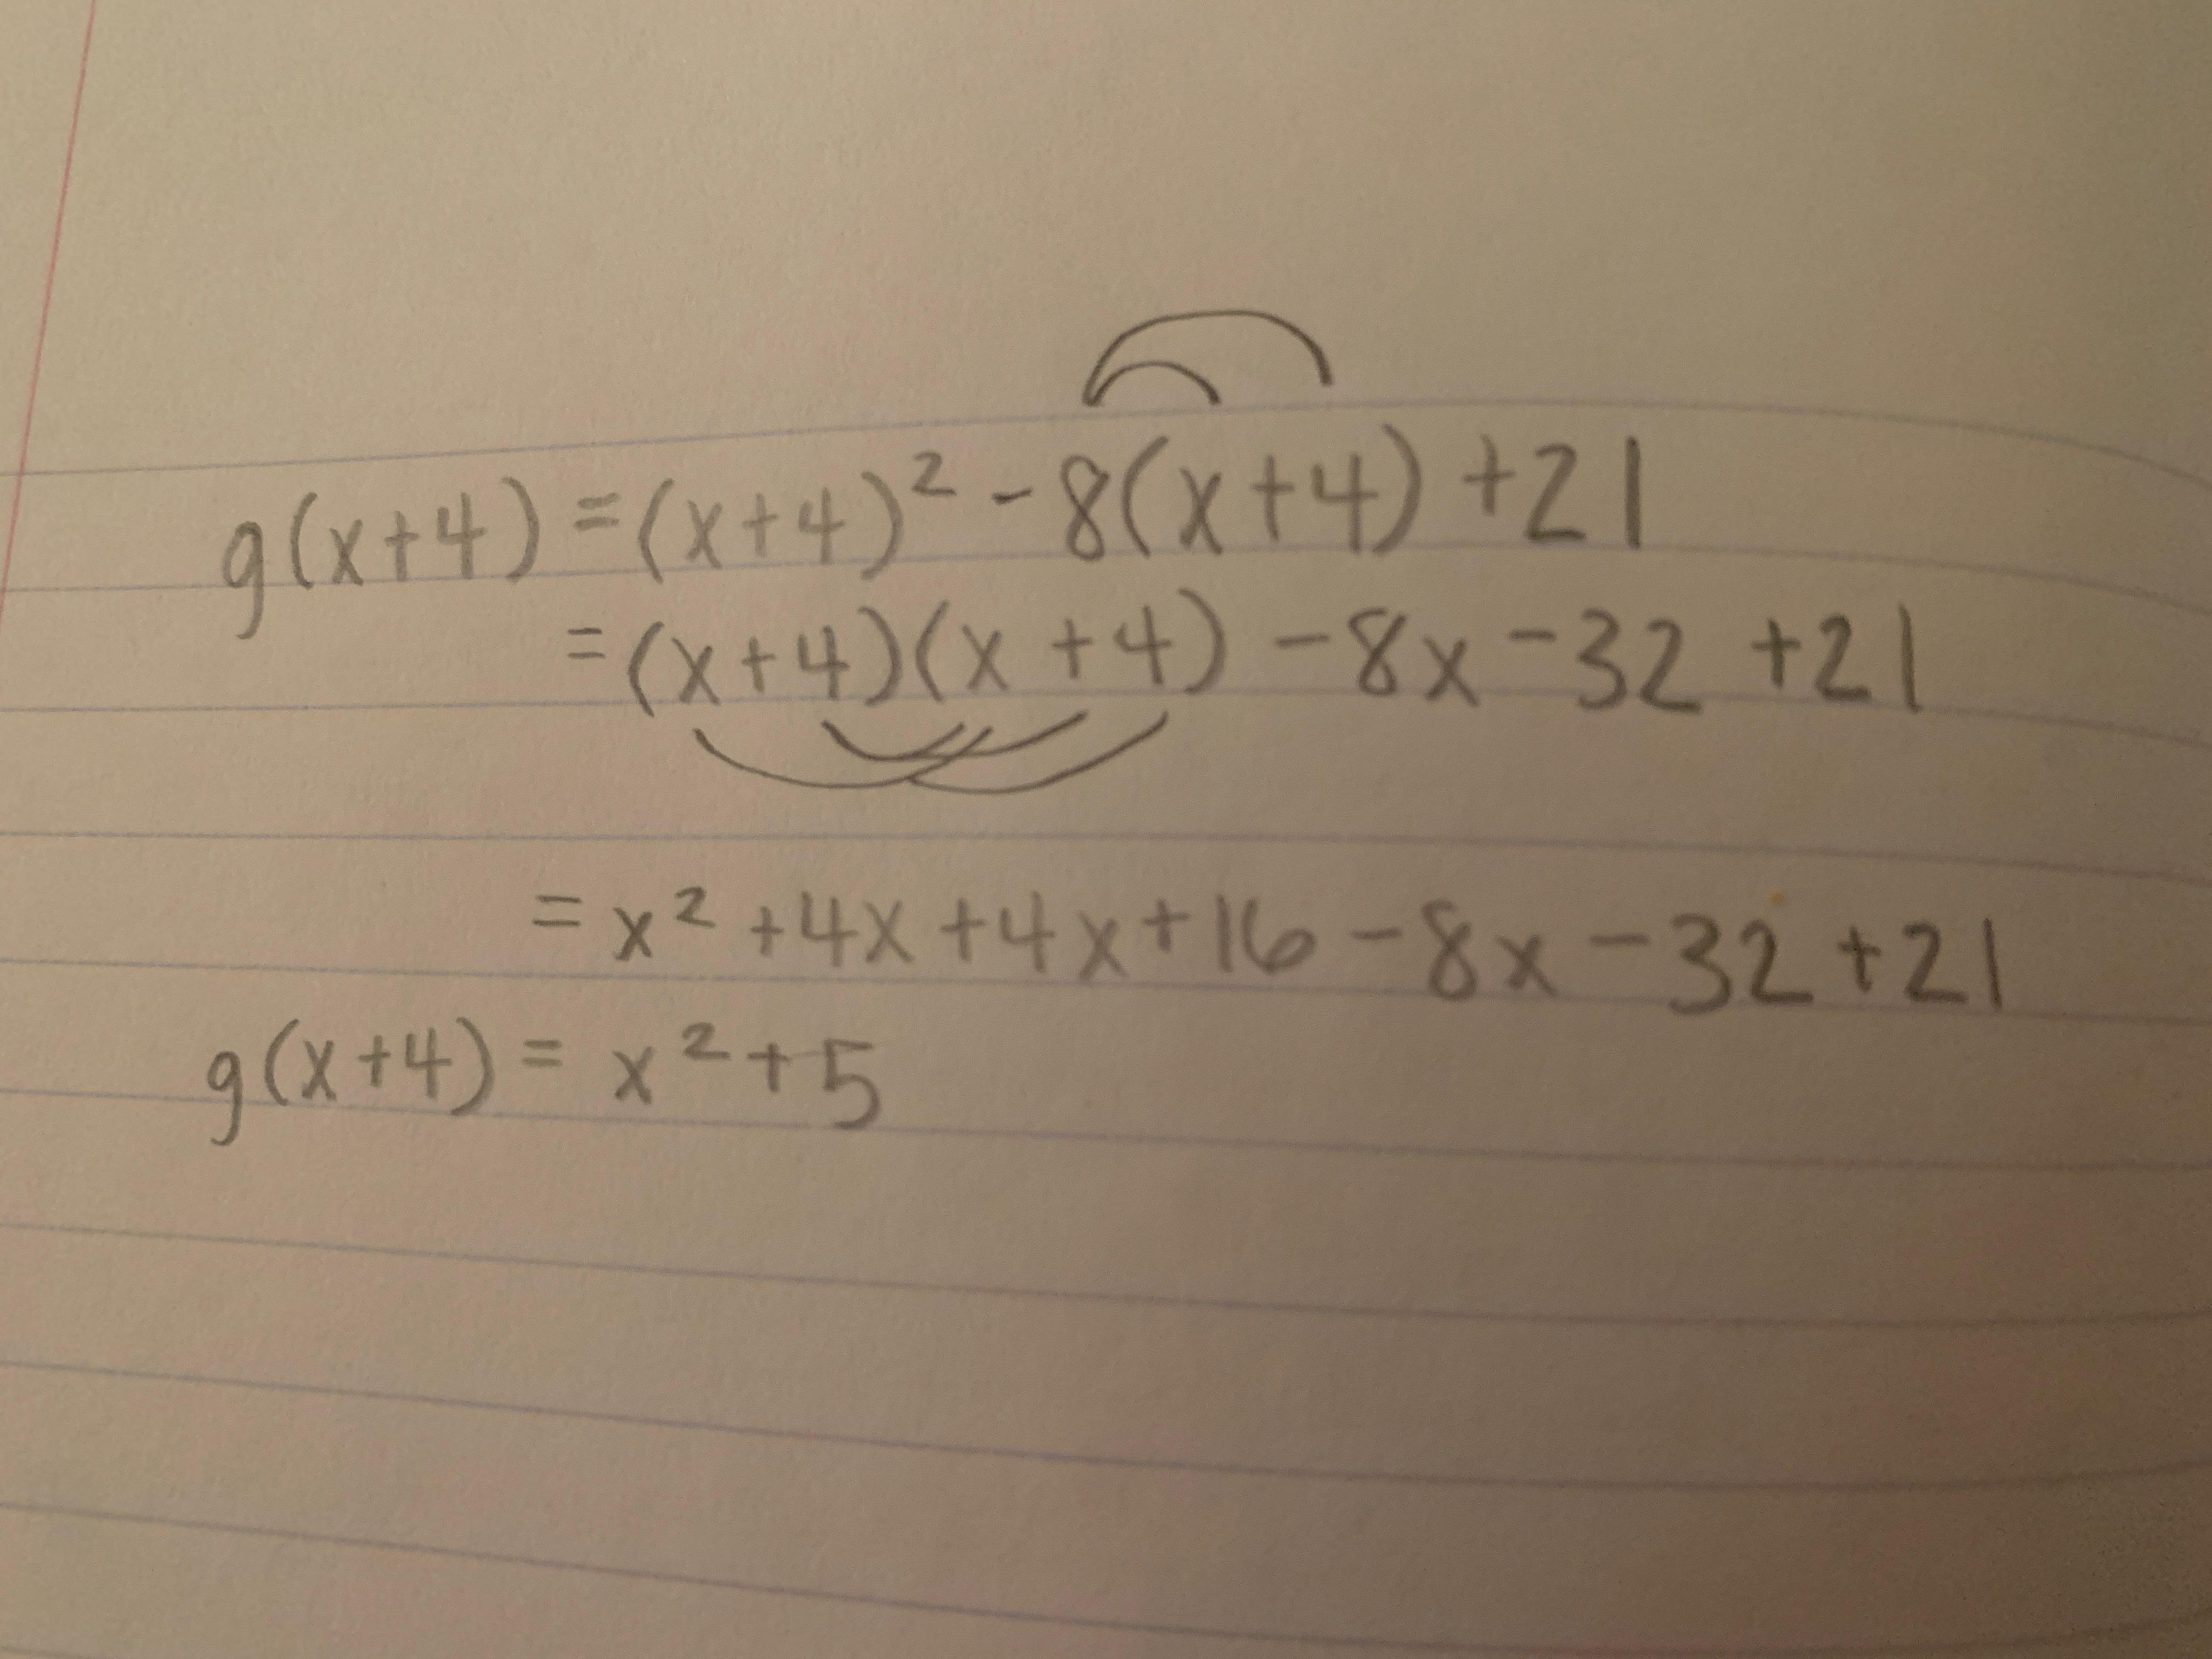 g(x+4) = (x+4)² - 8(x+4) + 21
= (x+4)(x+4) - 8x - 32 + 21
= x² + 4x + 4x + 16 - 8x - 32 + 21
g(x+4) = x² + 5